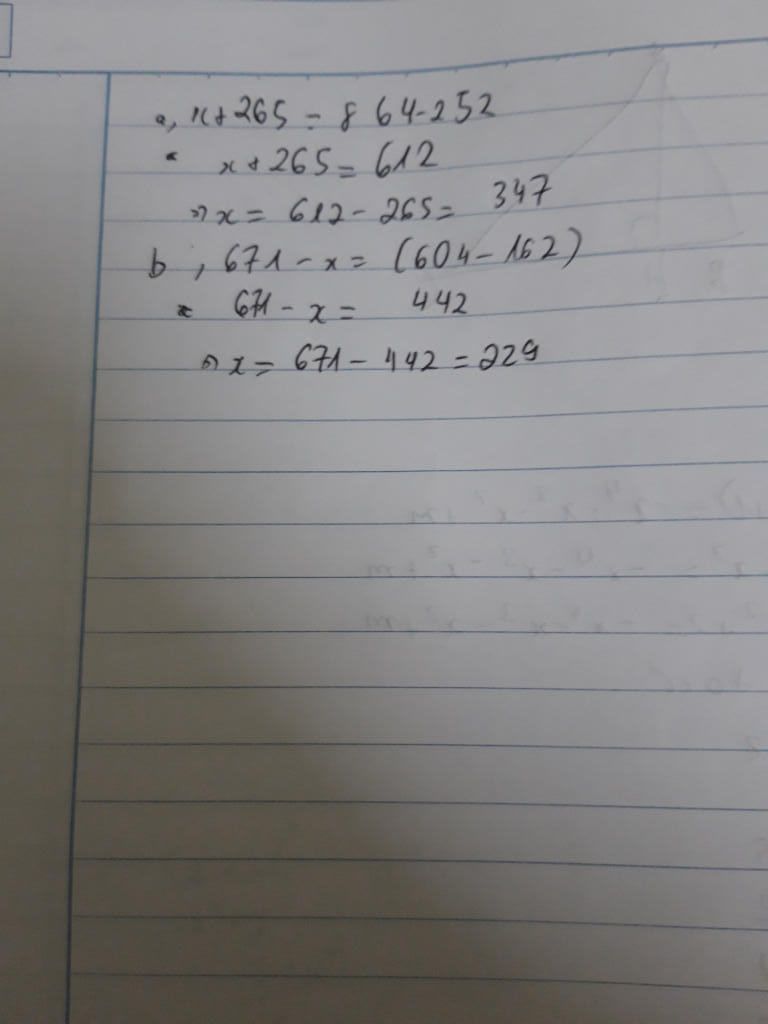 a, x + 265 = 864 - 252
x + 265 = 612
=> x = 612 - 265 = 347
b, 671 - x = (604 - 162)
671 - x = 442
=> x = 671 - 442 = 229